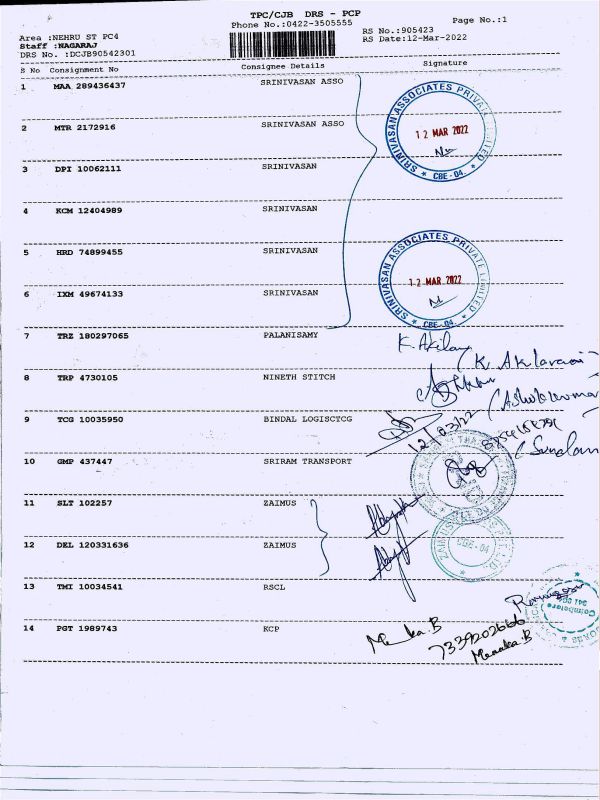 TPC/CJB DRS - PCP
Phone No.:0422-3505555
Page No.:1
Area :NEHRU ST PC4
RS No.:905423
Staff :NAGARAJ
RS Date:12-Mar-2022
DRS No. :DCJB90542301
S No Consignment No Consignee Details Signature
1 MAA 289436437 SRINIVASAN ASSO
SRINIVASAN ASSOCIATES PRIVATE LIMITED
12 MAR 2022
* CBE - 04. *
2 MTR 2172916 SRINIVASAN ASSO
3 DPI 10062111 SRINIVASAN
4 KCM 12404989 SRINIVASAN
5 HRD 74899455 SRINIVASAN
SRINIVASAN ASSOCIATES PRIVATE LIMITED
12 MAR 2022
* CBE - 04. *
6 IXM 49674133 SRINIVASAN
7 TRZ 180297065 PALANISAMY
K. Akilan
8 TRP 4730105 NINETH STITCH
9 TCG 10035950 BINDAL LOGISCTCG
12/03/22
10 GMP 437447 SRIRAM TRANSPORT
11 SLT 102257 ZAIMUS
12 DEL 120331636 ZAIMUS
CBE - 04
13 TMI 10034541 RSCL
Coimbatore
641 001
14 PGT 1989743 KCP
Menaka.B
7339202666
Menaka.B